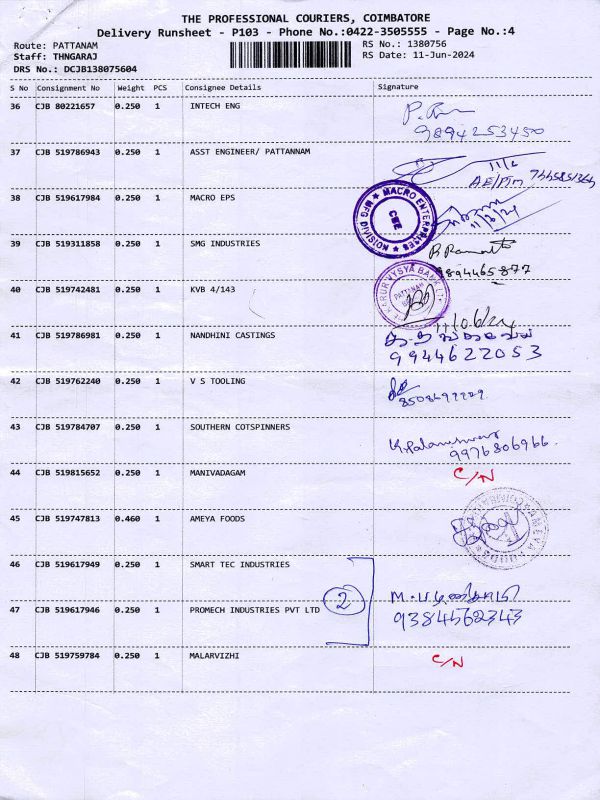 THE PROFESSIONAL COURIERS, COIMBATORE
Delivery Runsheet - P103 - Phone No.:0422-3505555 - Page No.:4
Route: PATTANAM
RS No.: 1380756
Staff: THNGARAJ
RS Date: 11-Jun-2024
DRS No.: DCJB138075604
S No Consignment No Weight PCS Consignee Details Signature
36 CJB 80221657 0.250 1 INTECH ENG
9894253450
37 CJB 519786943 0.250 1 ASST ENGINEER/ PATTANNAM
38 CJB 519617984 0.250 1 MACRO EPS
MACRO ENTERPRISES
MFG DIVISION
CBE
39 CJB 519311858 0.250 1 SMG INDUSTRIES
9894465877
40 CJB 519742481 0.250 1 KVB 4/143
KARUR VYSYA BANK LTD
PATTANAM
11/06/24
41 CJB 519786981 0.250 1 NANDHINI CASTINGS
9944622053
42 CJB 519762240 0.250 1 V S TOOLING
43 CJB 519784707 0.250 1 SOUTHERN COTSPINNERS
9976806966
44 CJB 519815652 0.250 1 MANIVADAGAM
C/N
45 CJB 519747813 0.460 1 AMEYA FOODS
AMEYA FOODS
46 CJB 519617949 0.250 1 SMART TEC INDUSTRIES
2
47 CJB 519617946 0.250 1 PROMECH INDUSTRIES PVT LTD
9384562343
48 CJB 519759784 0.250 1 MALARVIZHI
C/N